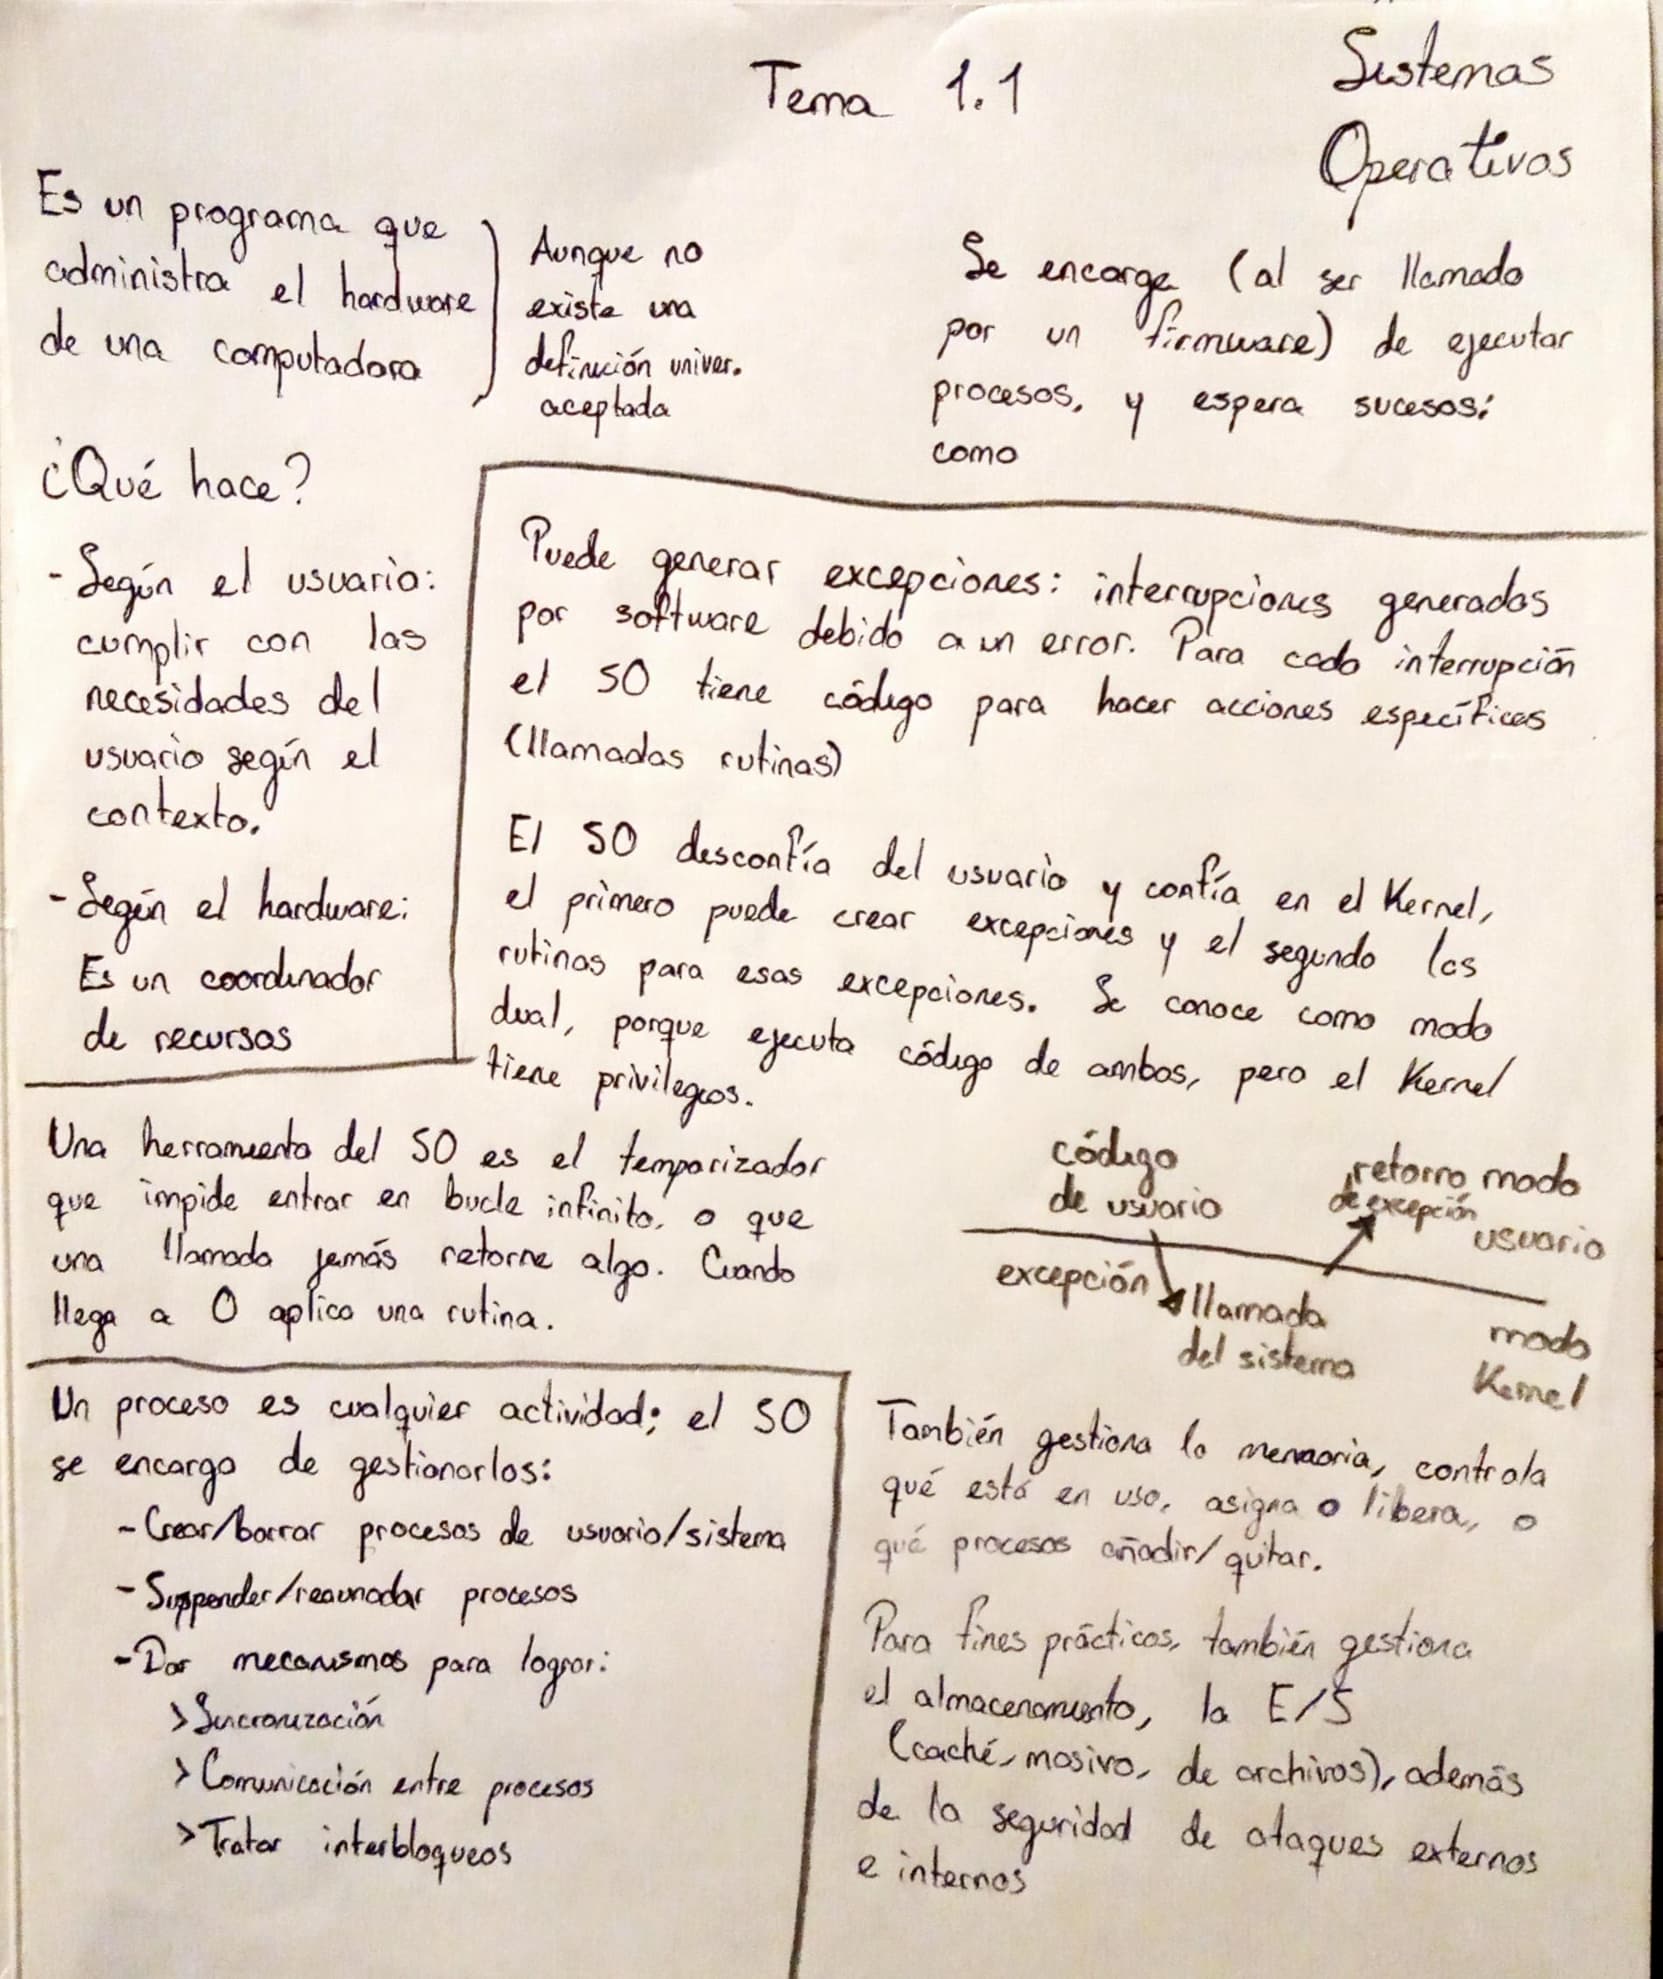 Tema 1.1
Sistemas
Operativos
Es un programa que
administra el hardware
de una computadora
Aunque no
existe una
definición univer.
aceptada
Se encarga (al ser llamado
por un firmware) de ejecutar
procesos, y espera sucesos:
como
¿Qué hace?
- Según el usuario:
cumplir con las
necesidades del
usuario según el
contexto.
- Según el hardware:
Es un coordinador
de recursos
Puede generar excepciones: interrupciones generadas
por software debido a un error. Para cada interrupción
el SO tiene código para hacer acciones específicas
(llamadas rutinas)
El SO desconfía del usuario y confía en el Kernel,
el primero puede crear excepciones y el segundo las
rutinas para esas excepciones. Se conoce como modo
dual, porque ejecuta código de ambos, pero el Kernel
tiene privilegios.
Una herramienta del SO es el temporizador
que impide entrar en bucle infinito, o que
una llamada jamás retorne algo. Cuando
llega a 0 aplica una rutina.
código
de usuario
retorno modo
de excepción
usuario
excepción
llamada
del sistema
modo
Kernel
Un proceso es cualquier actividad; el SO
se encarga de gestionarlos:
- Crear/borrar procesos de usuario/sistema
- Suspender/reanudar procesos
- Dar mecanismos para lograr:
> Sincronización
> Comunicación entre procesos
> Tratar interbloqueos
También gestiona la memoria, controla
qué está en uso, asigna o libera, o
qué procesos añadir/quitar.
Para fines prácticos, también gestiona
el almacenamiento, la E/S
(caché, masivo, de archivos), además
de la seguridad de ataques externos
e internos